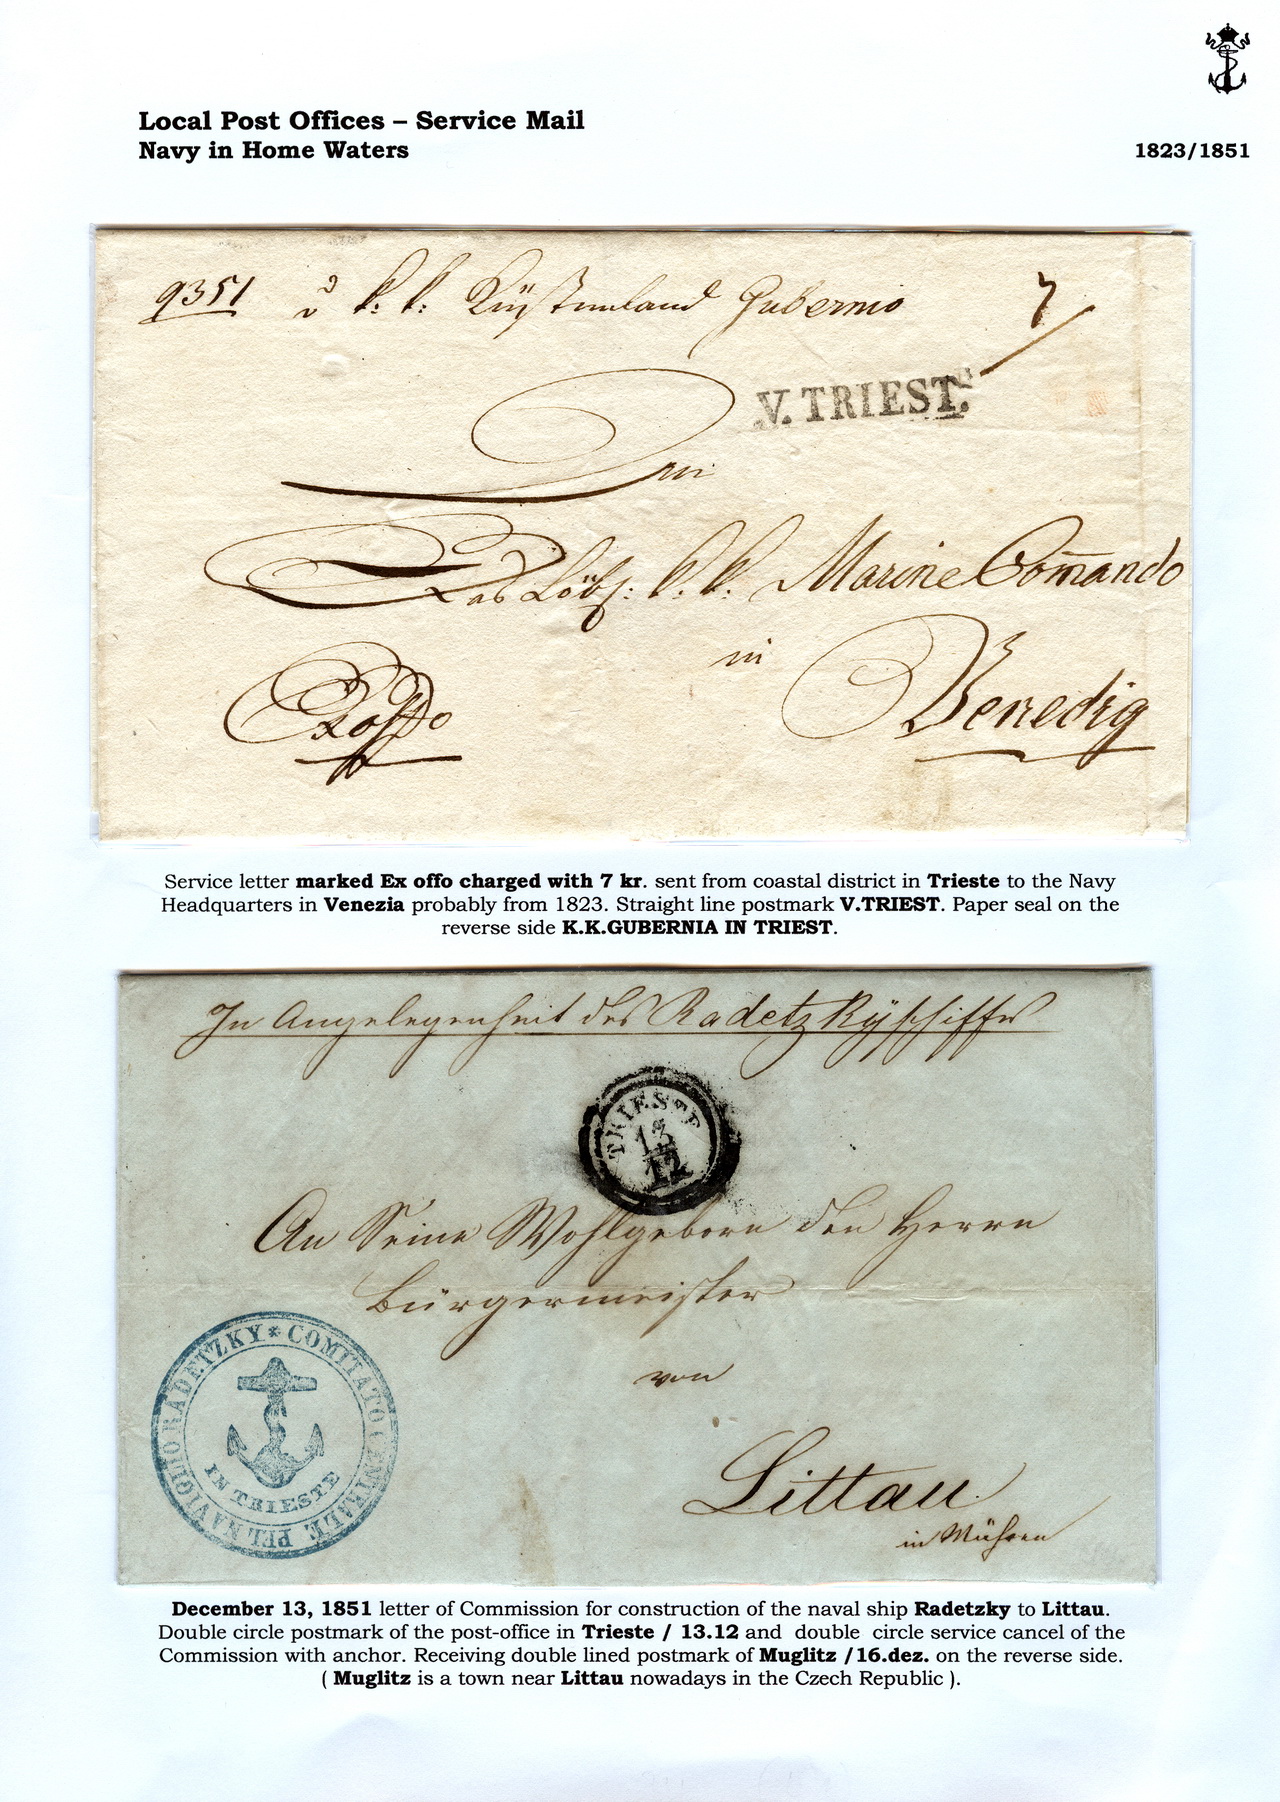 Local Post Offices – Service Mail
Navy in Home Waters
1823/1851
9351
k. k. Küstenland Gubernio
7
V. TRIEST.
An
Das Löbl: k. k. Marine Com̄ando
in
Venedig
Exoffo
Service letter marked Ex offo charged with 7 kr. sent from coastal district in Trieste to the Navy
Headquarters in Venezia probably from 1823. Straight line postmark V.TRIEST. Paper seal on the
reverse side K.K.GUBERNIA IN TRIEST.
In Angelegenheit des Radetzkÿschiffes
TRIESTE
13
12
An Seine Wohlgeborn den Herrn
Bürgermeister
von
Littau
in Mähren
COMITATO CENTRALE PEL NAVIGLIO RADETZKY *
IN TRIESTE
December 13, 1851 letter of Commission for construction of the naval ship Radetzky to Littau.
Double circle postmark of the post-office in Trieste / 13.12 and double circle service cancel of the
Commission with anchor. Receiving double lined postmark of Muglitz /16.dez. on the reverse side.
( Muglitz is a town near Littau nowadays in the Czech Republic ).